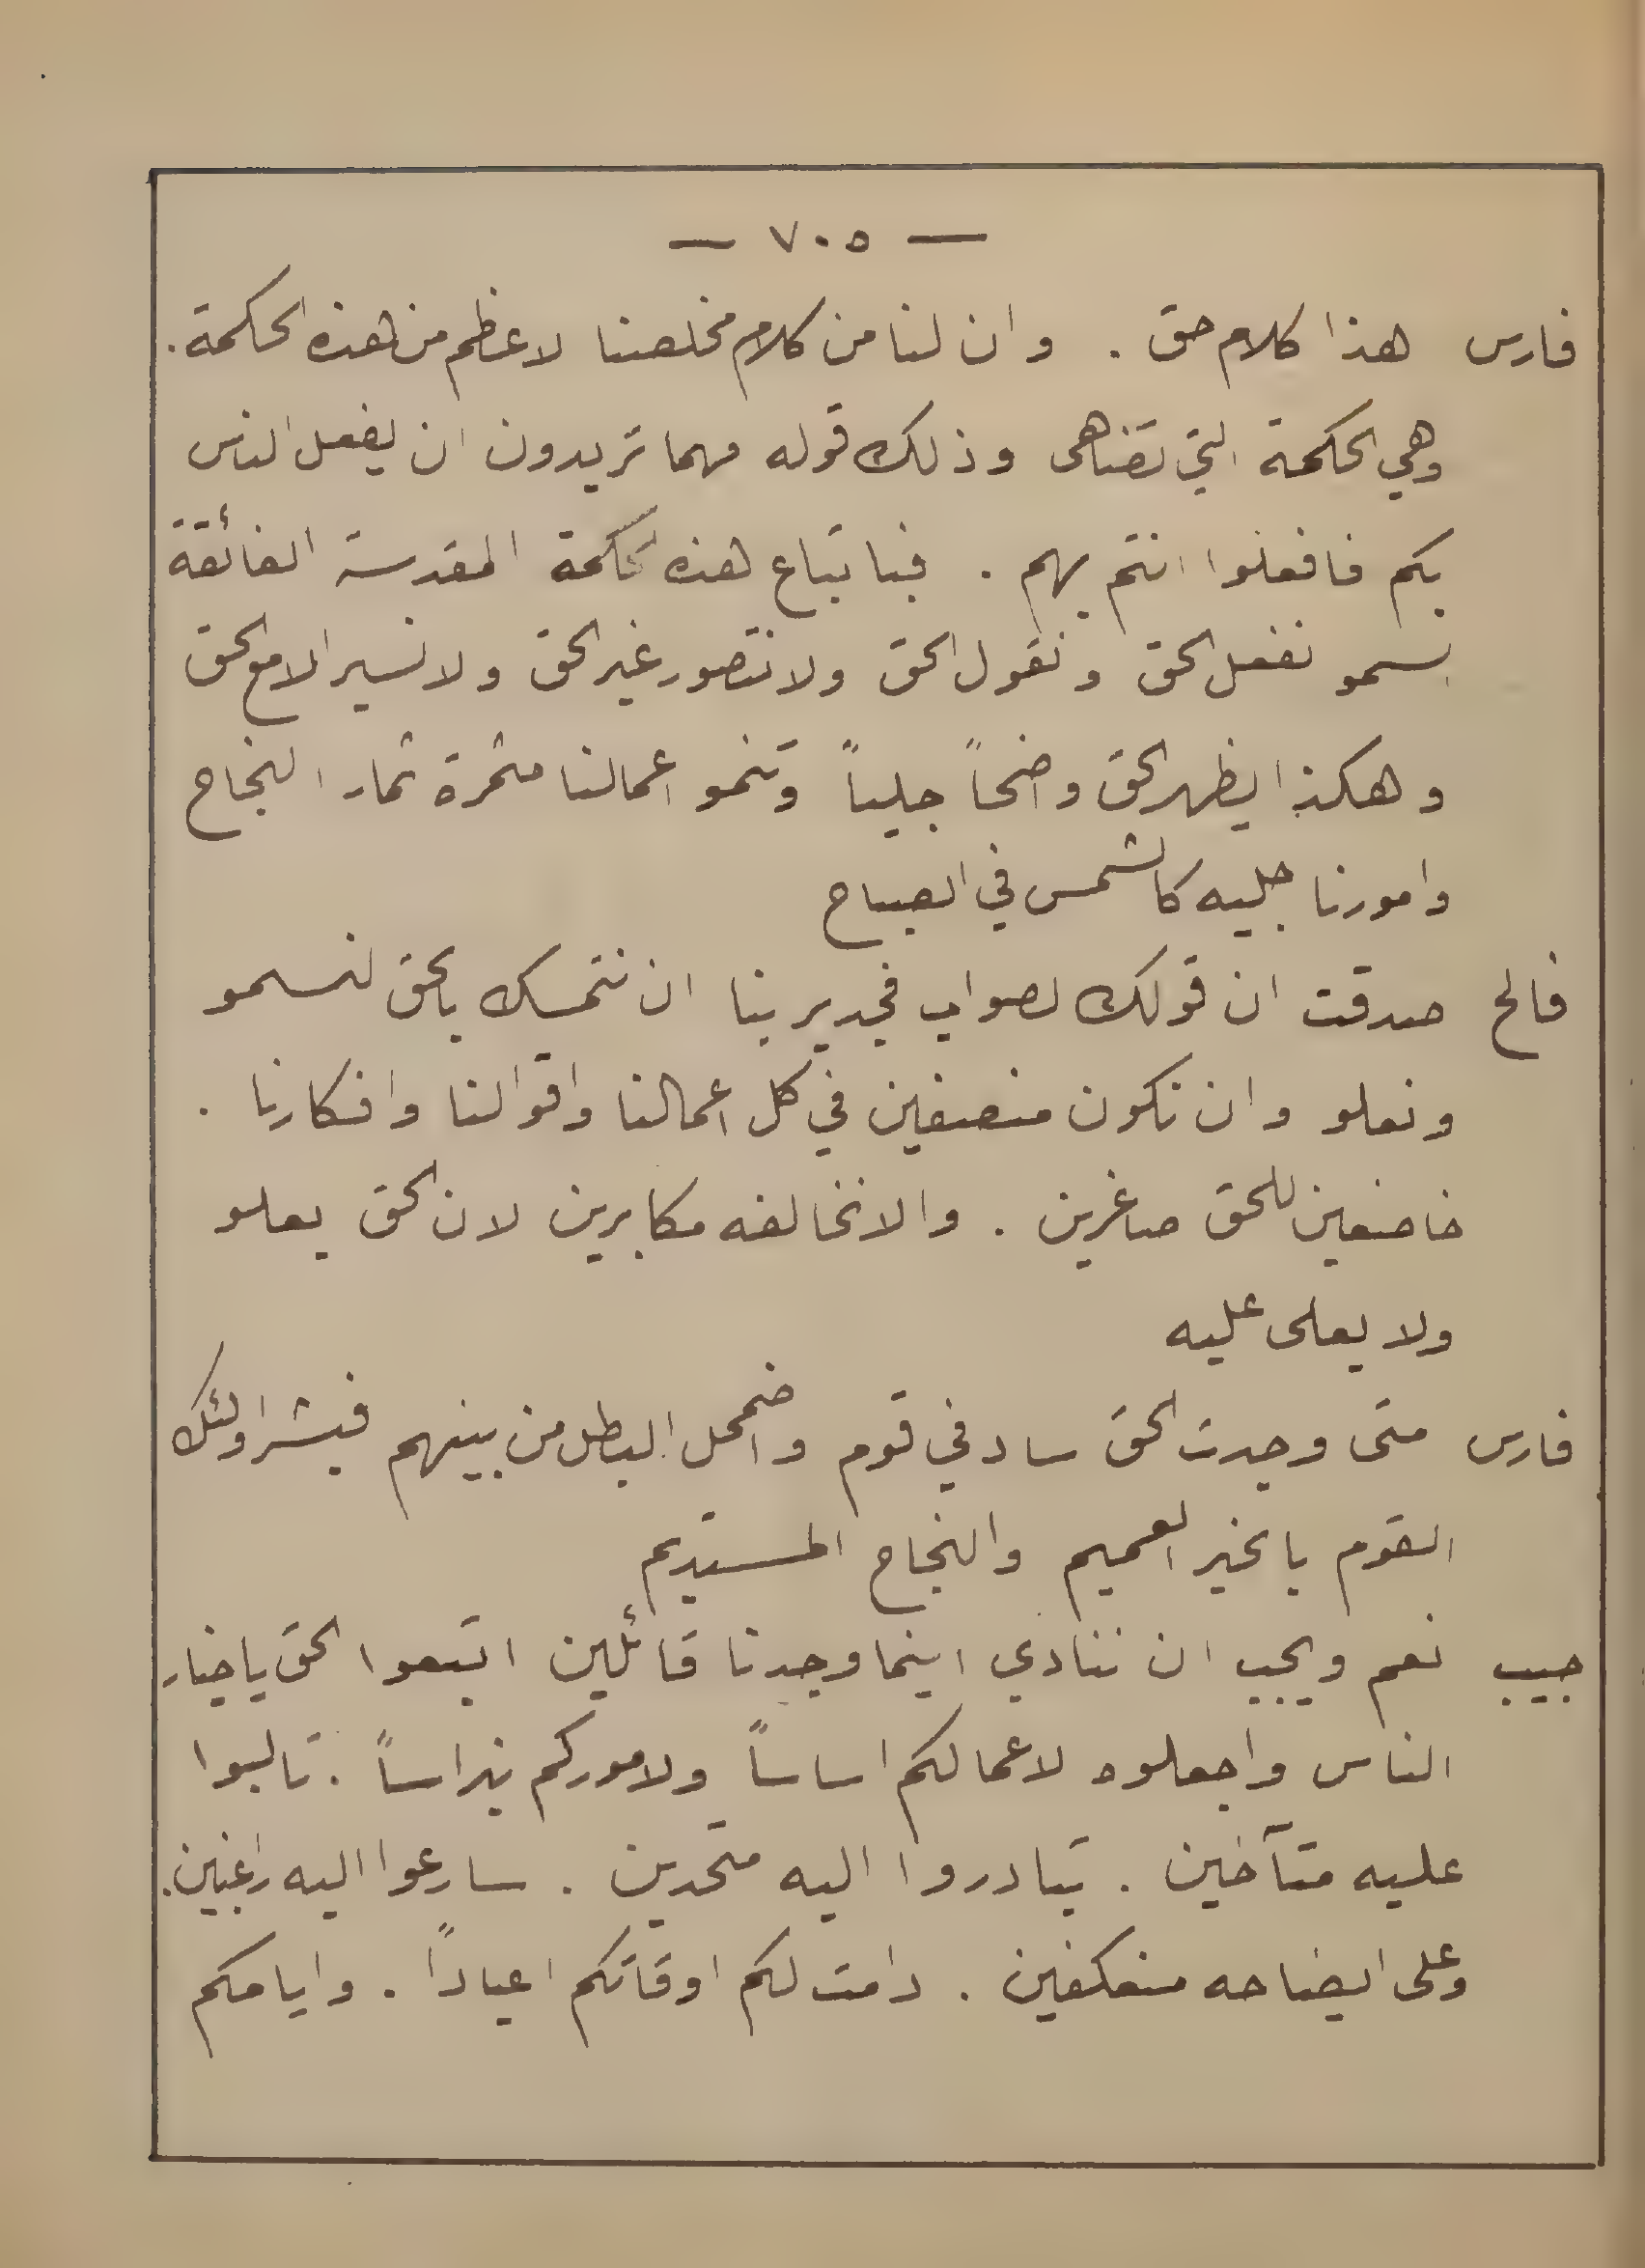 — ٧٠٥ —
فارس هذا كلام حق . وان لنا من كلام مخلصنا لاعظم من هذه الحكمة .
وهي الحكمة التي تضاهى وذلك قوله مهما تريدون ان يفعل الناس
بكم فافعلوا انتم بهم . فباتباع هذه الحكمة المقدسة الفائقة
بسمو نفعل الحق ونقول الحق ولا نتصور غير الحق ولا نسير الا مع الحق
وهكذا يظهر الحق واضحاً جلياً وتنمو اعمالنا مثمرة ثمار النجاح
وامورنا جليه كالشمس في الصباح
فالح صدقت ان قولك لصواب فجدير بنا ان نتمسك بالحق لنسمو
ونعلو وان نكون منصفين في كل اعمالنا واقوالنا وافكارنا .
خاضعين للحق صاغرين . والا نخالفه مكابرين لان الحق يعلو
ولا يعلى عليه
فارس متى وجدت الحق ساد في قوم واضمحل البطل من بينهم فبشر اولئك
القوم بالخير العميم والنجاح المستديم
حبيب نعم ويجب ان ننادي اينما وجدنا قائلين اتبعوا الحق يا خيار
الناس واجعلوه لاعمالكم اساساً ولاموركم نبراساً . تالبوا
عليه متآخين . تبادروا اليه متحدين . سارعوا اليه راغبين .
وعلى ايضاحه منعكفين . دامت لكم اوقاتكم اعياداً . وايامكم